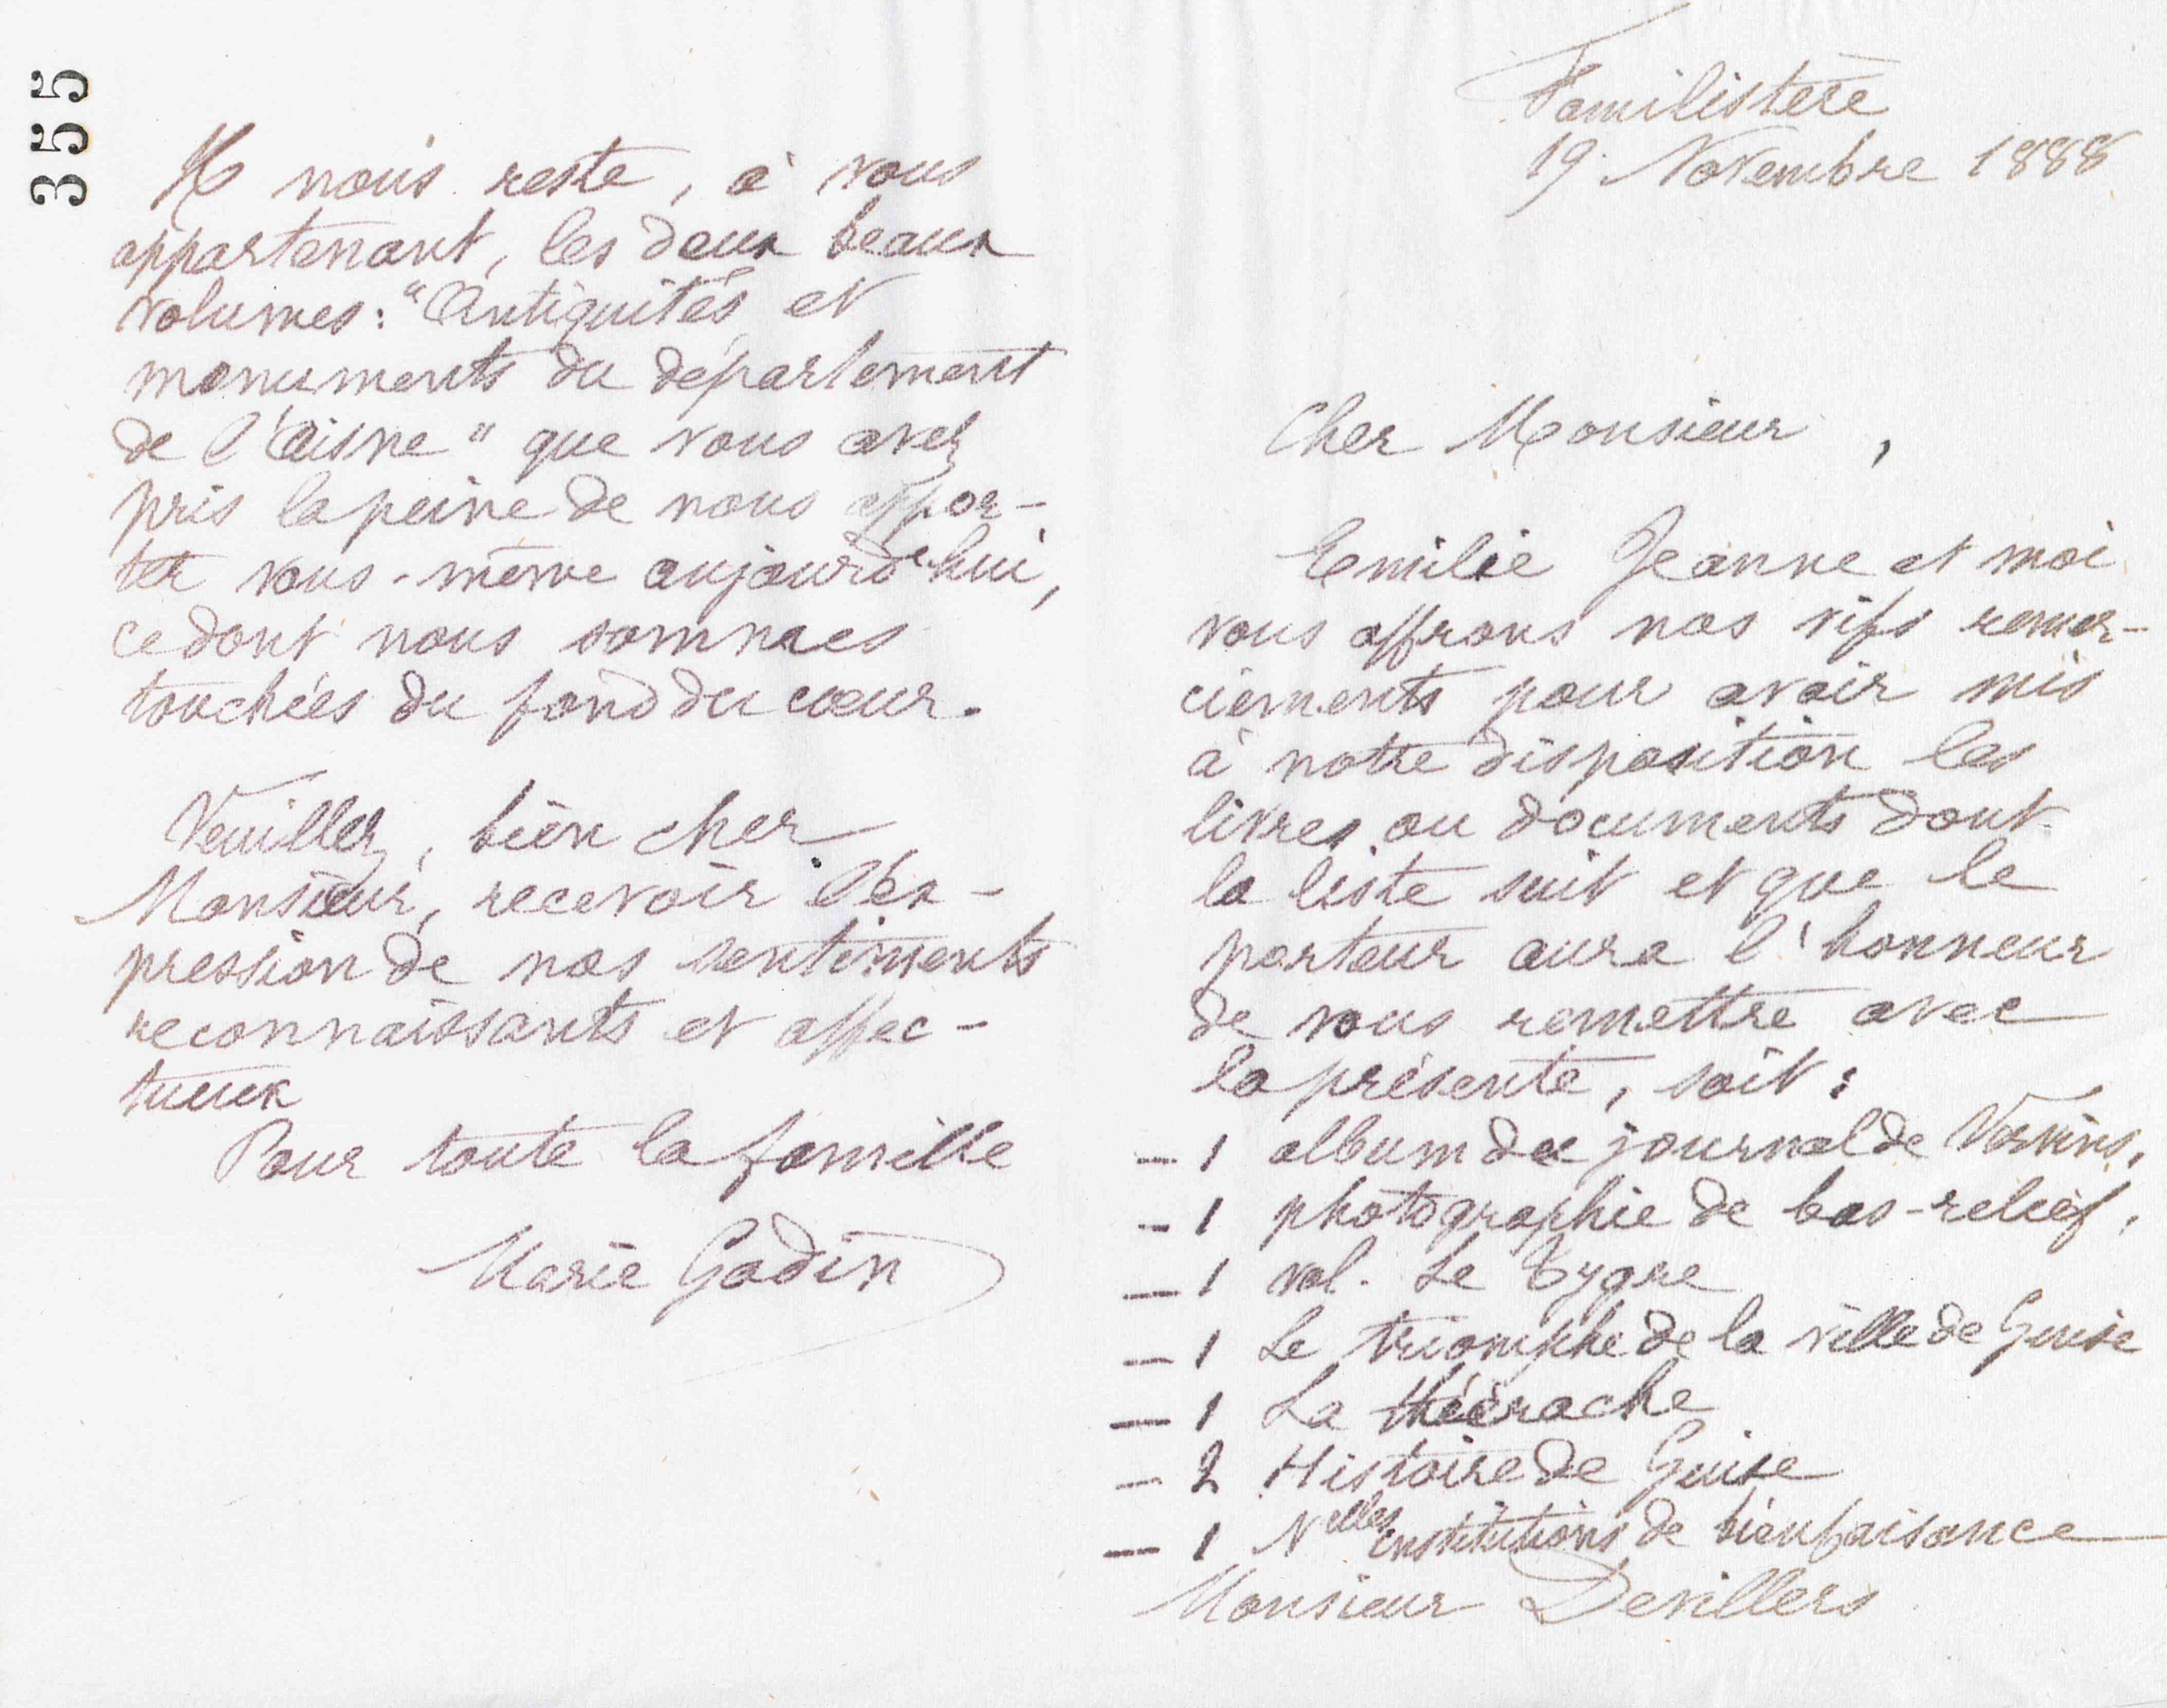 355
Familistère
19 Novembre 1888
Cher Monsieur,
Emilie Jeanne et moi
vous offrons nos vifs remer-
ciements pour avoir mis
à notre disposition les
livres ou documents dont
la liste suit et que le
porteur aura l'honneur
de vous remettre avec
la présente, soit :
– 1 album du journal de Vervins,
– 1 photographie de bas-relief,
– 1 vol. Le Tygre
– 1 Le triomphe de la ville de Guise
– 1 La thiérache
– 2 Histoire de Guise
– 1 Nelles institutions de bienfaisance
Monsieur Devillers
Il nous reste, à vous
appartenant, les deux beaux
volumes : "Antiquités et
monuments du département
de l'Aisne" que vous avez
pris la peine de nous appor-
ter vous-même aujourd'hui,
ce dont nous sommes
touchées du fond du cœur.
Veuillez, bien cher
Monsieur, recevoir l'ex-
pression de nos sentiments
reconnaissants et affec-
tueux
Pour toute la famille
Marie Godin